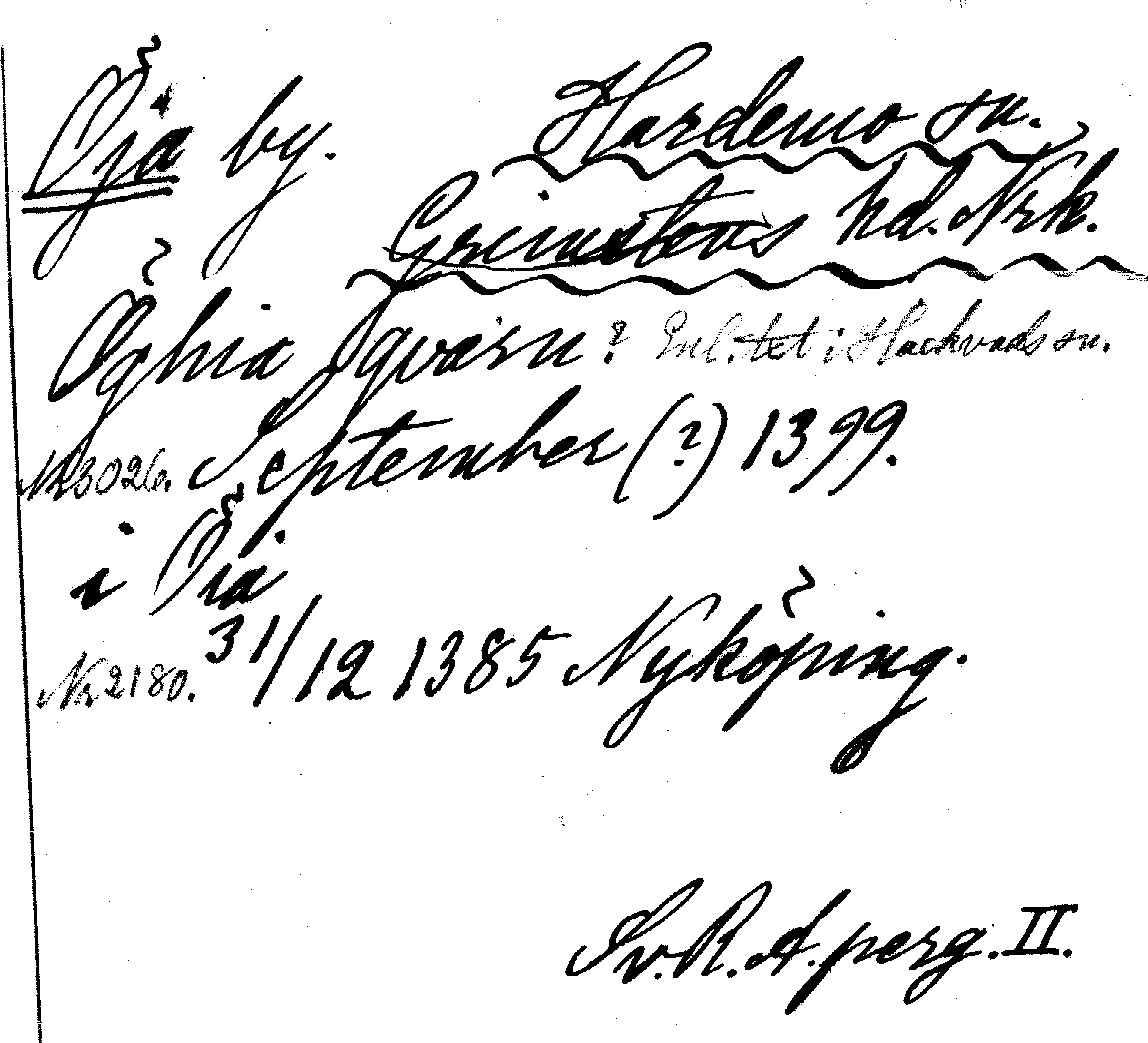 Öja by. Hardemo sn.
Grimstens hd. Nrk.
Öghia qværn? Enl. tet i Hackvads sn.
Nr 3026. September (?) 1399.
i Öia
Nr 2180. 31/12 1385 Nyköping.
Sv. R. A. perg. II.